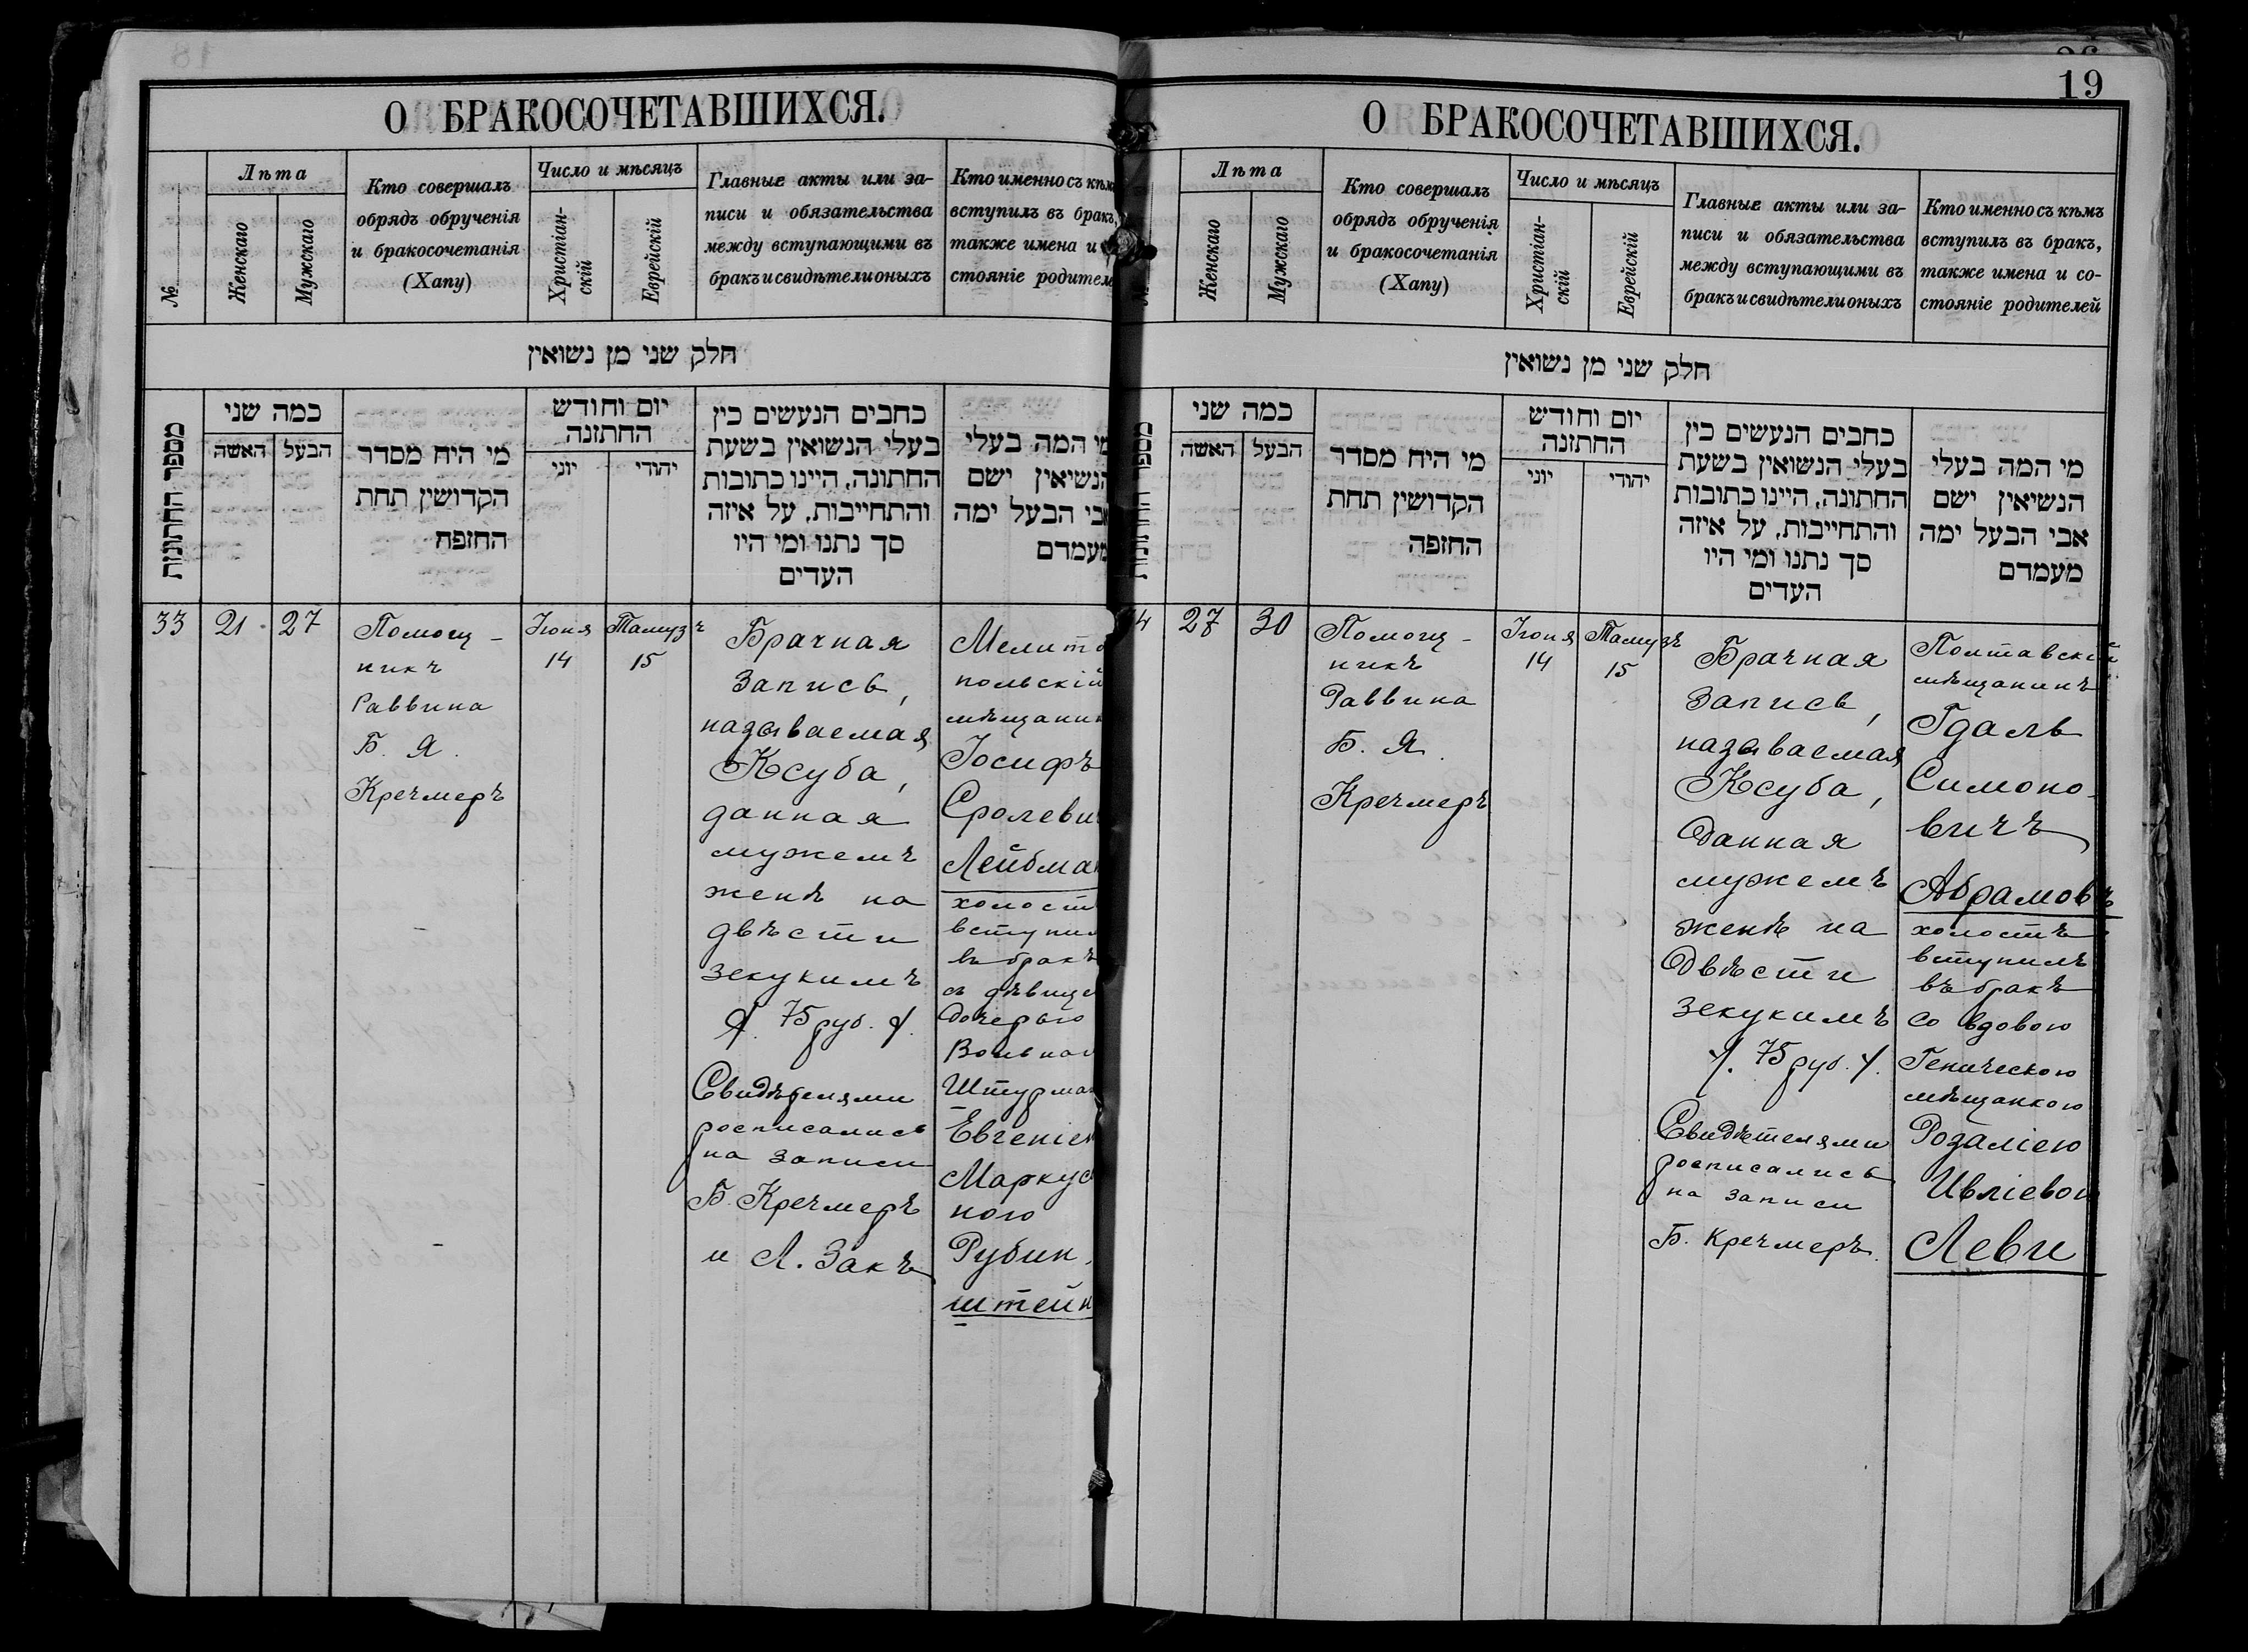 19
О БРАКОСОЧЕТАВШИХСЯ.
№
Лѣта
Женскаго
Мужскаго
Кто совершалъ
обрядъ обрученія
и бракосочетанія
(Хапу)
Число и мѣсяцъ
Христіан-
скій
Еврейскій
Главные акты или за-
писи и обязательства
между вступающими въ
бракъ и свидѣтели оныхъ
Кто именно съ кѣмъ
вступилъ въ бракъ,
также имена и
стояніе родителе
חלק שני מן נשואין
מספר החתונות
כמה שני
האשה
הבעל
מי היח מסדר
הקדושין תחת
החזפח
יום וחודש
החתזנה
יוני
יהודי
כחבים הנעשים כין
בעלי הנשואין בשעת
החתונה, היינו כתובות
והתחייבות, על איזה
סך נתנו ומי היו
העדים
מי המה בעלי
הנשיאין ישם
אבי הבעל ימה
מעמדם
33
21
27
Помощ-
никъ
Раввина
Б. Я.
Кречмеръ
Іюня
14
Тамузъ
15
Брачная
Запись,
называемая
Ксуба,
данная
мужемъ
женѣ на
двѣсти
зекукимъ
/. 75 руб. /.
Свидѣтелями
росписались
на записи
Б. Кречмеръ
и Л. Закъ
Мелито
польскій
мѣщанин
Іосифъ
Сролеви
Лейбма
холост
вступил
въ бракъ
съ дѣвице
дочерью
Вольна
Штурма
Евгеніе
Маркус
ною
Рубин-
штейн
О БРАКОСОЧЕТАВШИХСЯ.
Лѣта
Женскаго
Мужскаго
Кто совершалъ
обрядъ обрученія
и бракосочетанія
(Хапу)
Число и мѣсяцъ
Христіан-
скій
Еврейскій
Главные акты или за-
писи и обязательства
между вступающими въ
бракъ и свидѣтели оныхъ
Кто именно съ кѣмъ
вступилъ въ бракъ,
также имена и со-
стояніе родителей
חלק שני מן נשואין
כמה שני
האשה
הבעל
מי היח מסדר
הקדושין תחת
החזפה
יום וחודש
החתזנה
יוני
יהודי
כחבים הנעשים כין
בעלי הנשואין בשעת
החתונה, היינו כתובות
והתחייבות, על איזה
סך נתנו ומי היו
העדים
מי המה בעלי
הנשיאין ישם
אבי הבעל ימה
מעמדם
4
27
30
Помощ-
никъ
Раввина
Б. Я.
Кречмеръ
Іюня
14
Тамузъ
15
Брачная
Запись,
называемая
Ксуба,
данная
мужемъ
женѣ на
двѣсти
зекукимъ
/. 75 руб. /.
Свидѣтелями
росписались
на записи
Б. Кречмеръ.
Полтавскій
мѣщанинъ
Гдаль
Симоно-
вичъ
Абрамовъ
холостъ
вступилъ
въ бракъ
со вдовою
Геническою
мѣщанкою
Розаліею
Ивліевою
Леви